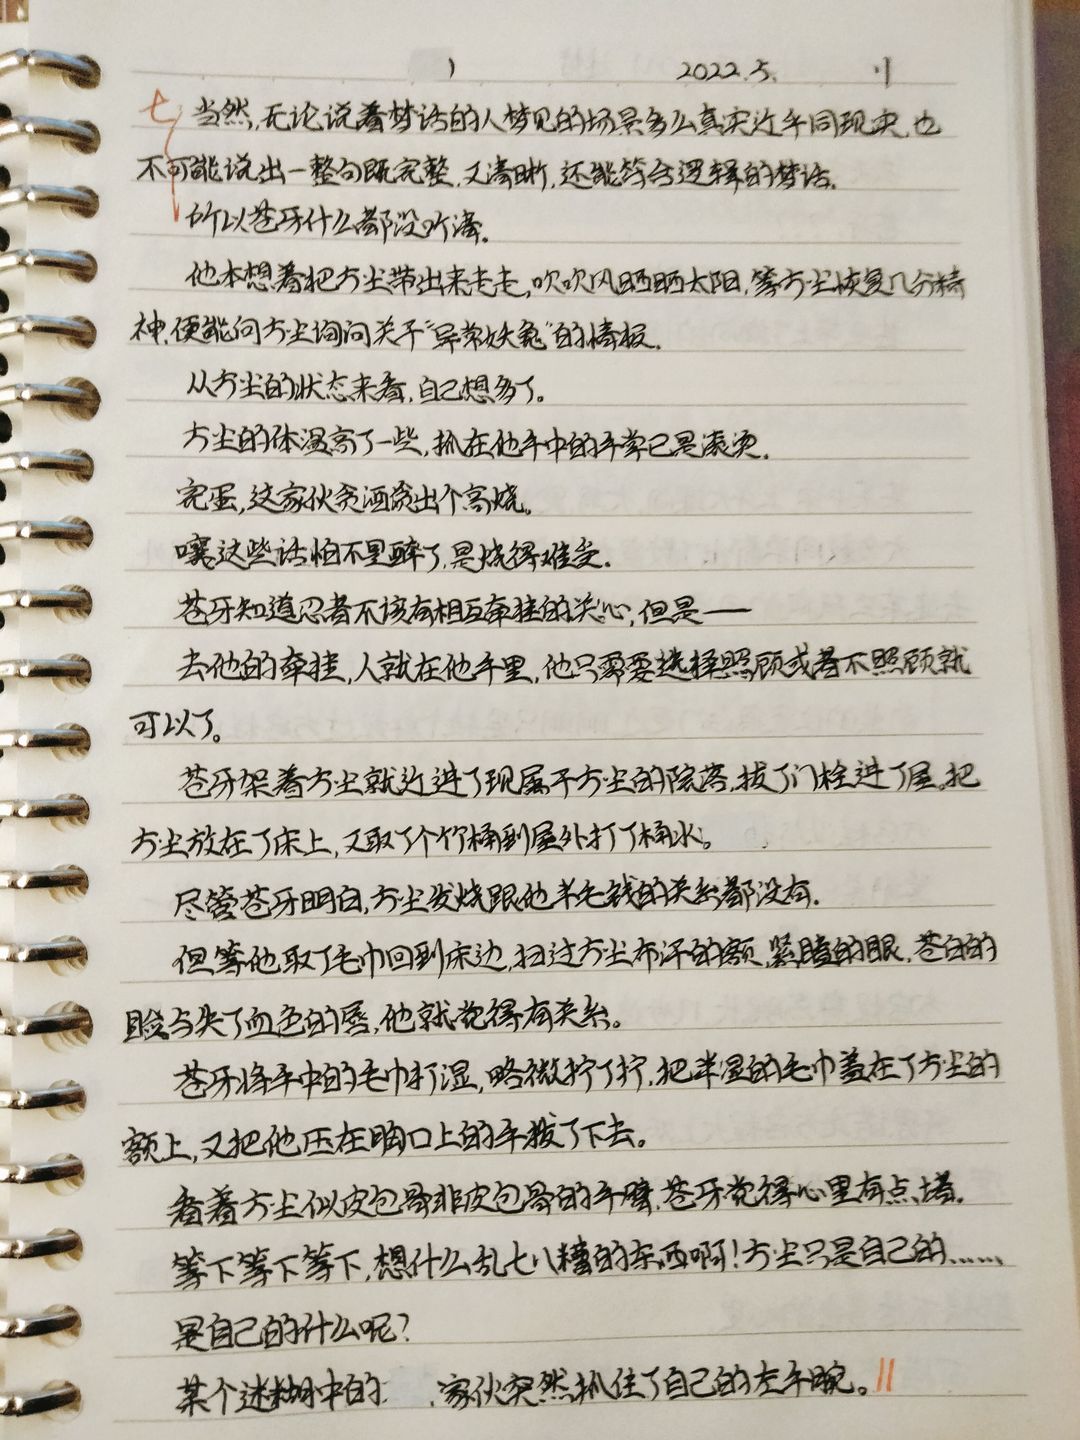 2022.5.
七、当然,无论说着梦话的人梦见的场景多么真实近乎同现实,也
不可能说出一整句既完整,又清晰,还能符合逻辑的梦话.
所以苍牙什么都没听清。
他本想着把方尘带出来走走,吹吹风晒晒太阳,等方尘恢复几分精
神,便能向方尘询问关于"异常妖兔"的情报.
从方尘的状态来看,自己想多了。
方尘的体温高了一些,抓在他手中的手掌已是滚烫.
完蛋,这家伙贪酒贪出个高烧。
嚷这些话怕不是醉了,是烧得难受.
苍牙知道忍者不该有相互牵挂的关心,但是——
去他的牵挂,人就在他手里,他只需要选择照顾或者不照顾就
可以了。
苍牙架着方尘就近进了现属于方尘的院落,拔了门栓进了屋,把
方尘放在了床上,又取了个竹桶到屋外打了桶水。
尽管苍牙明白,方尘发烧跟他半毛钱的关系都没有.
但等他取了毛巾回到床边,扫过方尘布汗的额,紧瞌的眼,苍白的
脸与失了血色的唇,他就觉得有关系。
苍牙将手中的毛巾打湿,略微拧了拧,把半湿的毛巾盖在了方尘的
额上,又把他压在胸口上的手拨了下去。
看着方尘似皮包骨非皮包骨的手臂,苍牙觉得心里有点堵.
等下等下等下,想什么乱七八糟的东西啊!方尘只是自己的......
是自己的什么呢?
某个迷糊中的 家伙突然抓住了自己的左手腕。